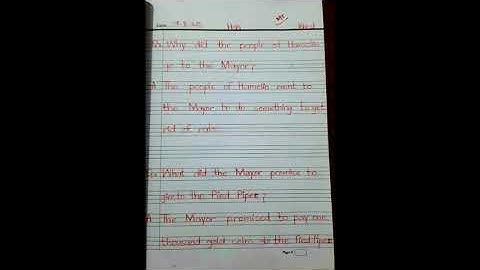 Why did the people of Hamelin
go to the Mayor?
A The people of Hamelin went to
the Mayor to do something to get
rid of rats.
What did the Mayor promise to
give to the Pied Piper?
A The Mayor promised to pay one
thousand gold coins to the Pied Piper